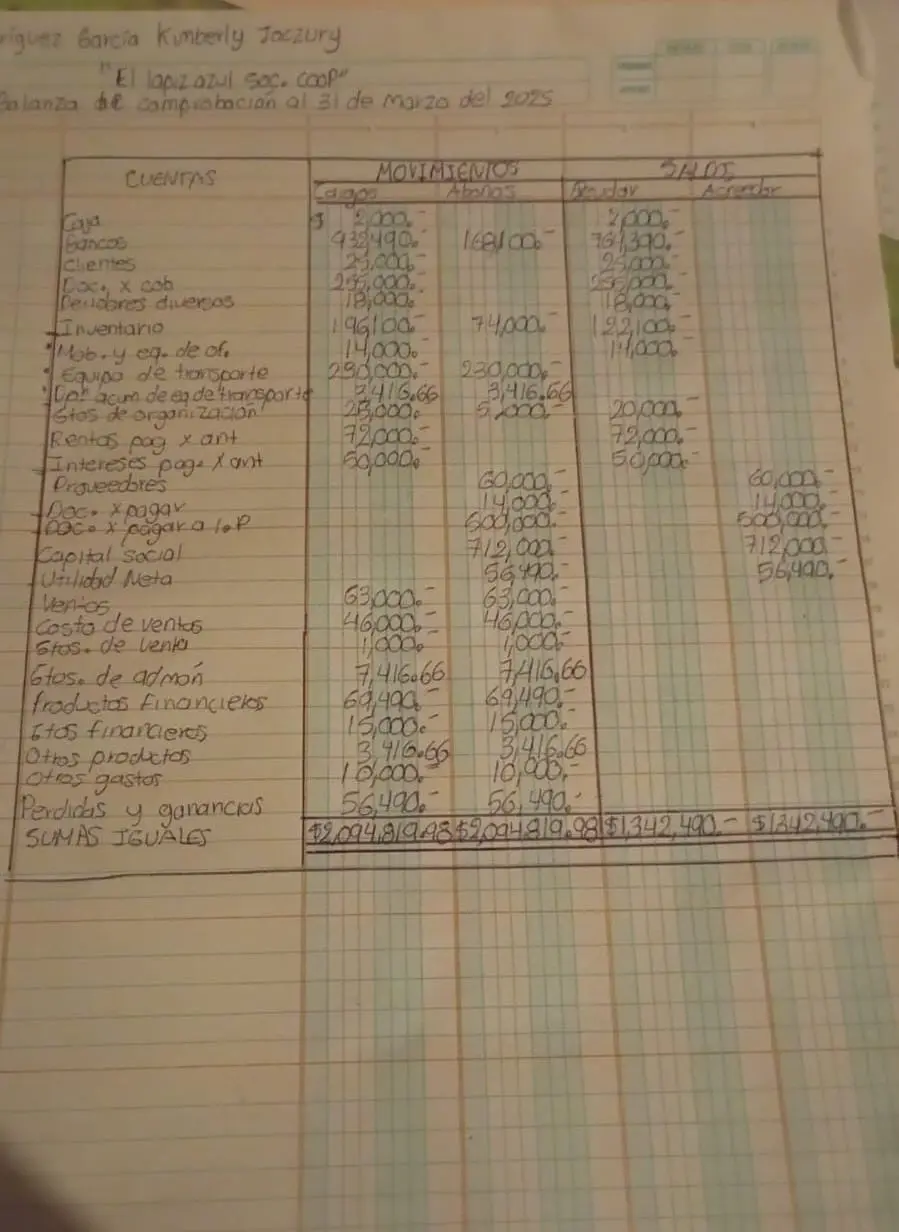 García Kimberly Joczury
"El lapiz azul soc. COOP"
Balanza de comprobación al 31 de Marzo del 2025
CUENTAS MOVIMIENTOS
Cargos Abonos Deudor Acreedor
Caja $ 2,000.- 2,000.-
Bancos 932,490.- 168,100.-
Clientes 25,000.- 25,000.-
Doc. x cob
Deudores diversos 18,000. 18,000,-
Inventario 196,100.- 74,000.- 122,100.-
Mob. y eq. de of. 14,000.- 14,000.-
Equipo de transporte 230,000.- 230,000.-
Dp. acum de eq de transporte 3,416.66 3,416.66
Gtos de organización 25,000. 5,000.- 20,000.-
Rentas pag x ant 72,000.- 72,000.-
Intereses pag. x ant 50,000. 50,000.-
Proveedores 60,000.- 60,000.-
Doc. x pagar 14,000.- 14,000.-
Doc. x pagar a l.P 500,000.- 500,000.-
Capital social 712,000.- 712,000-
Utilidad Neta 56,490.- 56,490.-
Ventas 63,000.- 63,000.-
Costo de ventas 46,000.- 46,000.-
Gtos. de venta 1,000.- 1,000.-
Gtos. de admón 7,416.66 7,416.66
Productos Financieros 69,490.- 69,490.-
Gtos financieros 15,000.- 15,000.-
Otros productos 3,416.66 3,416.66
Otros gastos 10,000.- 10,000.-
Perdidas y ganancias 56,490.- 56,490.-
SUMAS IGUALES $2,094,819.98 $2,094,819.98 $1,342,490.- $1,342,490.-